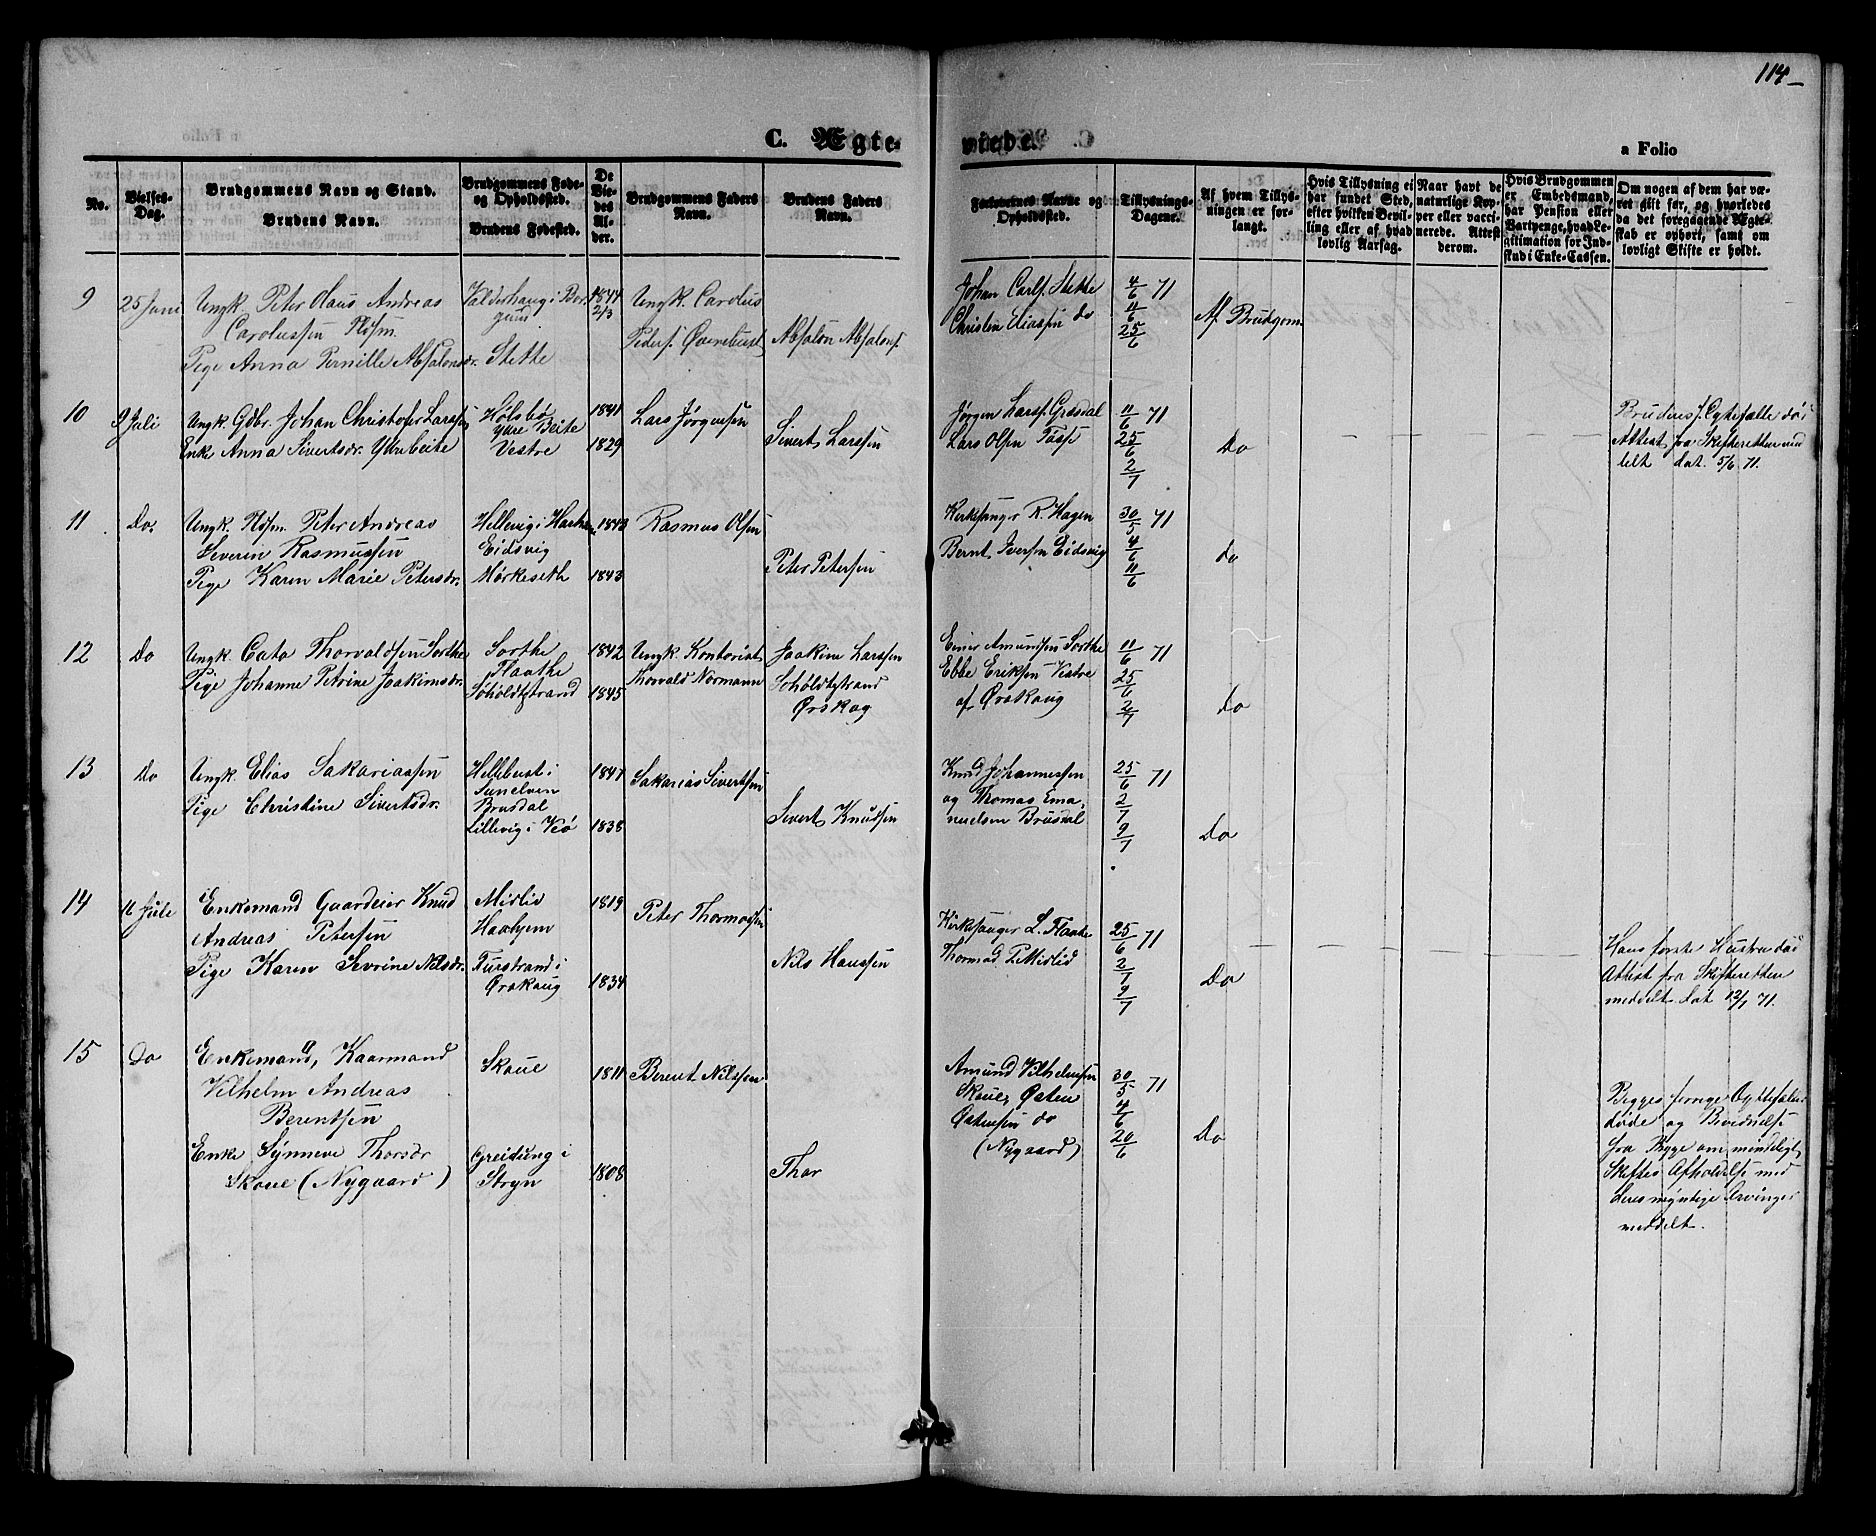 114
C. Ægte-
viede.
a Folio
No.
Vielses-
Dag.
Brudgommens Navn og Stand.
Brudens Navn.
Brudgommens Føde-
og Opholdssted.
Brudens Fødested.
De
Vie-
des
Al-
der.
Brudgommens Faders
Navn.
Brudens Faders
Navn.
Forlovernes Navne og
Opholdssted.
Tillysnings-
Dagene.
Af hvem Tillys-
ningen er for-
langt.
Hvis Tillysning ei
har fundet Sted,
efter hvilken Bevil-
ling eller af hvad
lovlig Aarsag.
Naar havt de
naturlige Kop-
per eller vacci-
nerede. Attest
derom.
Hvis Brudgommen
er Embedsmand,
har Pension eller
Vartpenge, hvad Le-
gitimation for Ind-
skud i Enke-Cassen.
Om nogen af dem har væ-
ret gift før, og hvorledes
da det foregaaende Ægte-
skab er ophørt, samt om
lovligt Skifte er holdt.
9
25 Juni
Ungk. Peter Claus Andreas
Carolussen
Pige Anna Pernille Absalonsdr.
Valderhaug i Bor-
gund
Stette
1844
2/3
Ungk. Carolus
Peders. Overebust
Absalon Absalons.
Johan Carls. Stette
Christen Eliassen do
4/6 71
11/6
25/6
Af Brudgom.
10
9 Juli
Ungk. Gdbr. Johan Christofer Larssen
Enke Anna Sivertsdr. Ytrebeite
Hølsbø
Ytre Beite
Vestre
1841
1829
Lars Jørgensen
Sivert Larssen
Jørgen Larss. Grøsdal
Lars Olsen Tøsse
11/6 71
25/6
2/7
Do
Brudens f. Egtefælle død
Attest fra Skifteretten med
delt dat. 5/6 71.
11
Do.
Ungk. Peter Andreas
Severin Rasmussen
Pige Karen Marie Petersdr.
Hellevig i
Eidsvig
Mørkeseth
1843
1843
Rasmus Olsen
Peter Petersen
Kirkesanger R. Hagen
Bernt Iversen Eidsvig
30/5 71
4/6
11/6
do
12
Do
Ungk. Cato Thorvaldsen Sorthe
Pige Johanne Petrine Joakimsdr.
Sorthe
Flaathe
Søholdtstrand
1842
1845
Ungk. Kontorist
Thorvald Normann
Joakim Larssen
Søholdtstrand
Ørskog
Einer Amundsen Sorthe
Ebbe Eriksen Vestre
af Ørskoug
11/6 71
25/6
2/7
Do
13
Do
Ungk. Elias Sakariassen
Pige Christine Sivertsdr.
Hellebust i
Sunelven
Brusdal
Lillevig i Veø
1847
1838
Sakarias Sivertsen
Sivert Knudsen
Knud Johannessen
og Thomas Ema-
nuelsen Brusdal
25/6 71
2/7
9/7
Do
14
16 Juli
Enkemand Gaardeier Knud
Andreas Petersen
Pige Karen Sevrine Nilsdr.
Midlid
Haahjem
Furstrand i
Ørskoug
1819
1834
Peter Thormodsen
Nils Hanssen
Kirkesanger L. Flaate
Thormod P. Midlid
25/6 71
2/7
9/7
Do
Hans første Hustru død
Attest fra Skifteretten
meddelt dat 12/7 71.
15
Do
Enkemand, Kaarmand
Vilhelm Andreas
Berentsen
Enke Synneve Thorsdr
Skoue (Nygaard)
Skoue
Greidung i
Stryn
1811
1808
Berent Nilssen
Thor
Amund Vilhelmsen
Skoue, Østen
Østensen do
(Nygaard)
30/5 71
4/6
20/6
Do
Begges forrige Egtefæller
døde og Bevidnelse
fra Begge om mindeligt
Skiftes Afholdelse med
deres myndige Arvinger
meddelt.